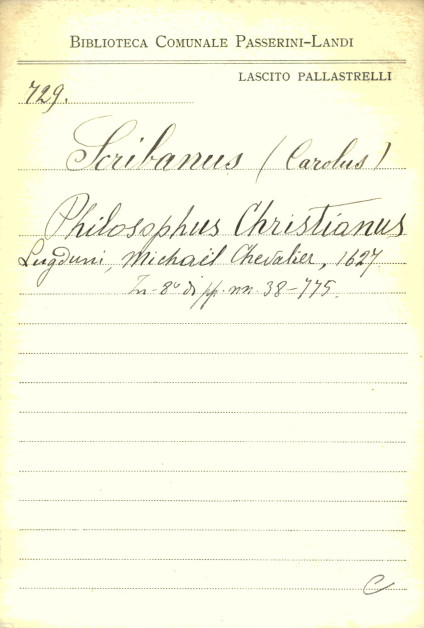 BIBLIOTECA COMUNALE PASSERINI-LANDI
LASCITO PALLASTRELLI
729.
Scribanus (Carolus)
Philosophus Christianus
Lugduni, Michaël Chevalier, 1627
In-8º di pp. nn. 38-775.
C